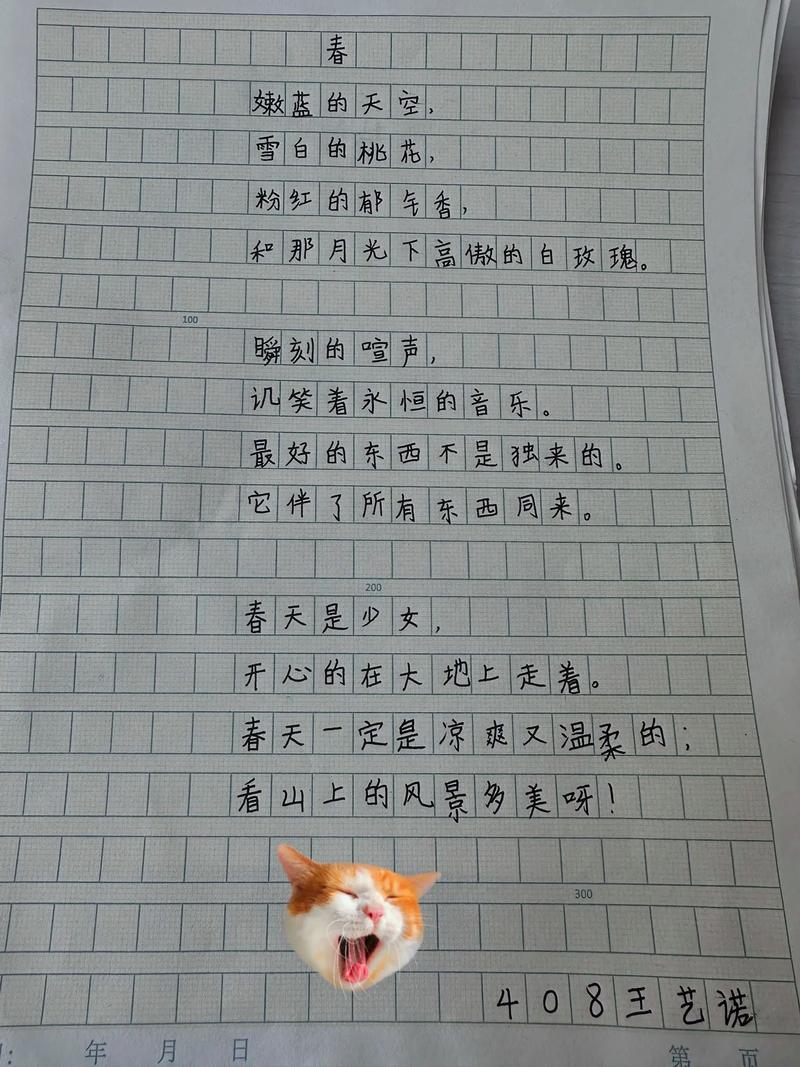 春
嫩蓝的天空,
雪白的桃花,
粉红的郁金香,
和那月光下高傲的白玫瑰。
100
瞬刻的喧声,
讥笑着永恒的音乐。
最好的东西不是独来的。
它伴了所有东西同来。
200
春天是少女,
开心的在大地上走着。
春天一定是凉爽又温柔的;
看山上的风景多美呀!
300
408王艺诺
年 月 日
第 页